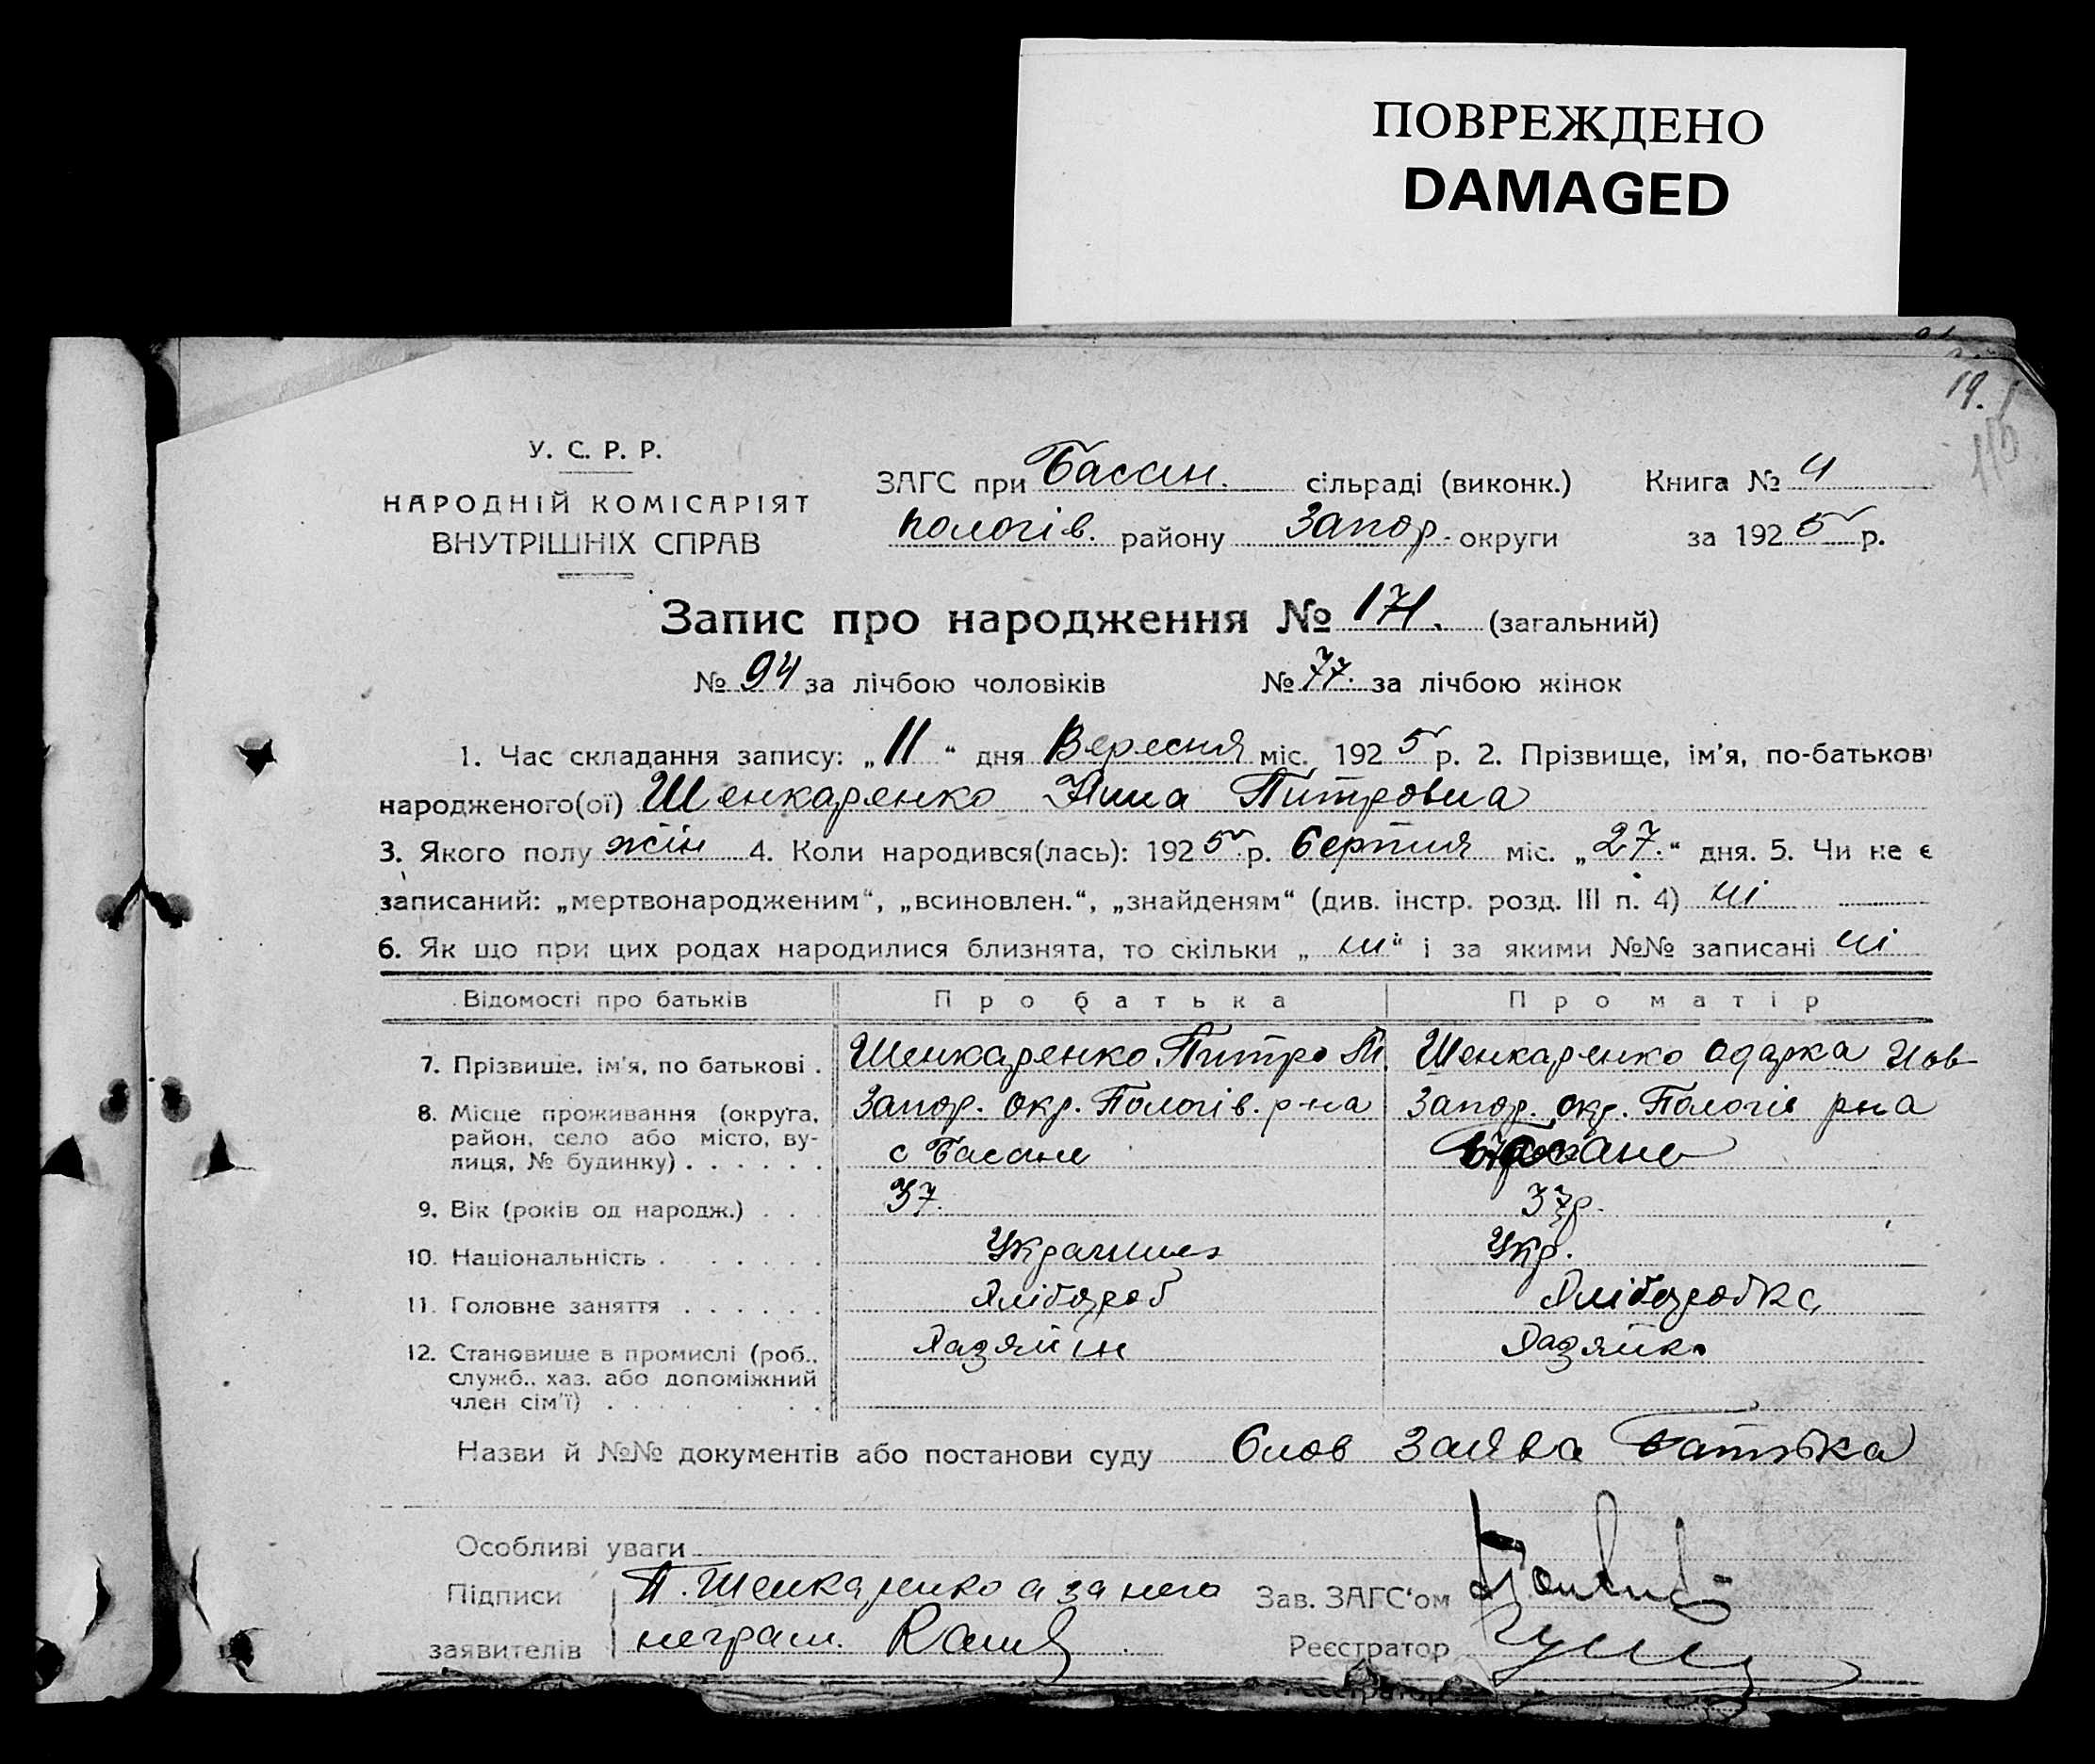 ПОВРЕЖДЕНО
DAMAGED
19.
У. С. Р. Р.
НАРОДНІЙ КОМІСАРІЯТ
ВНУТРІШНІХ СПРАВ
ЗАГС при Басан. сільраді (виконк.) Книга № 4
Пологів. району Запор. округи за 1925 р.
Запис про народження № 171. (загальний)
№ 94 за лічбою чоловіків № 77. за лічбою жінок
1. Час складання запису: „11“ дня Вересня міс. 1925 р. 2. Прізвище, ім'я, по-батькові
народженого(ої) Шенкаренко Нина Питровна
3. Якого полу жін 4. Коли народився(лась): 1925 р. Серпня міс. „27.“ дня. 5. Чи не є
записаний: „мертвонародженим“, „всиновлен.“, „знайденям“ (див. інстр. розд. III п. 4) ні
6. Як що при цих родах народилися близнята, то скільки „ні“ і за якими №№ записані ні
Відомості про батьків Про батька Про матір
7. Прізвище, ім'я, по батькові . Шенкаренко Питро Шенкаренко Одарка
8. Місце проживання (округа, район, село або місто, вулиця, № будинку) . . . . . . Запор. окр. Пологів. р-на Запор. окр. Пологів рна
с Басане Басань
9. Вік (років од народж.) . . . 37. 37р.
10. Національність . . . . . . . Украинец Укр.
11. Головне заняття . . . . . . Хлібороб Хліборобка
12. Становище в промислі (роб., служб., хаз. або допоміжний член сім'ї) . . . . . . Хазяйін Хазяйка
Назви й №№ документів або постанови суду Слов Заява Батька
Особливі уваги
Підписи П. Шенкаренко а за него Зав. ЗАГС'ом
заявителів неграм. Реєстратор